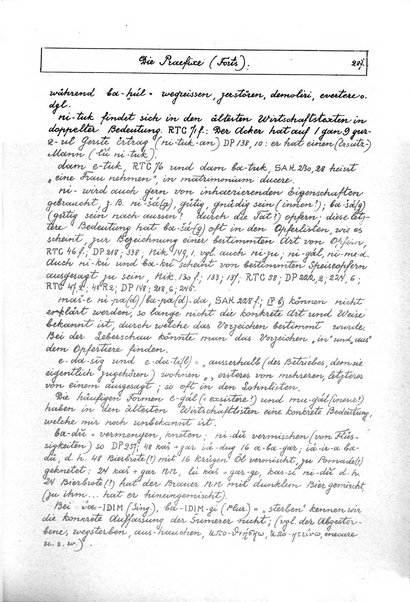 Die Praefixe (Forts).
207.
während ba-ḫul = wegreissen, zerstören, demoliri, evertere o.
dgl.
ni-tuk findet sich in den ältesten Wirtschaftstexten in
doppelter Bedeutung. RTC 71 f: Der Acker hat auf 1 gan 9 gur-
2-ul Gerste Ertrag (ni-tuk-an) DP 138, 10: er hat einen
Mann (lù ni-tuk).
dam e-tuk, RTC 76 und dam ba-tuk, SAK 230, 28 heisst
"eine Frau nehmen", in matrimonium ducere.
ni- wird auch gern von inhaerierenden Eigenschaften
gebraucht, z.B. ni-šá(g), gütig, gnädig sein (innen!); ba-šá(g)
(gütig sein nach aussen! durch die Tat!) opfern; diese letz-
tere Bedeutung hat ba-šá(g) oft in den Opferlisten, wie es
scheint, zur Bezeichnung einer bestimmten Art von Opfern,
RTC 46 f; DP 218; 338; Nik. 149, 1 vgl. auch ni-zu; ni-gál, ni-me-d.
Auch ni-kú und ba-kú scheint von bestimmten Speiseopfern
ausgesagt zu sein, Nik. 130 f; 133; 137; RTC 58; DP 222, 2; 224, 6;
RTC 47, 2; 41 R 2; DP 148; 213, 6; 246.
máš-e ni-pa(d) / ba-pa(d)-da, SAK 228 f; können nicht
erklärt werden, so lange nicht die konkrete Art und Weise
bekannt ist, durch welche das Vorzeichen bestimmt wurde.
Bei der Leberschau könnte man das Vorzeichen "in" und "aus"
dem Opfertiere finden.
e-da-sig und e-da-ti(l) = "ausserhalb (des Betriebes, dem sie
eigentlich zugehören) wohnen", ersteres von mehreren, letzteres
von einem ausgesagt; so oft in den Lohnlisten.
Die häufigen Formen e-gál (= existere!) und mu-gál (inesse!)
haben in den ältesten Wirtschaftlisten eine konkrete Bedeutung,
welche mir noch unbekannt ist.
ba-dŭ = vermengen, kneten; ni-dŭ vermischen (von Flüs-
sigkeiten) so DP 257; 48 kaš gar iá-dug 16 a-ba-gar; iá-ir-a ba-
dŭ, d.h. 48 Bierbrote(?) mit 16 Krügen Öl vermischt, zu Pomade(?)
geknetet: 24 kaš + gar NN, lù kaš + gar-ge, kas-si ni-dŭ d.h.
24 Bierbrote(?) hat der Brauer NN mit dunklem Bier gemischt
(zu ihm... hat er hineingemischt).
Bei ba-IDIM (Sing), ba-IDIM-gi (Plur) = "sterben" kennen wir
die konkrete Auffassung der Sumerer nicht; (vgl. der Abgestor-
bene, wegsterben, aus-hauchen,
u.s.w.).